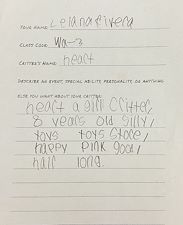 YOUR NAME: Lelana Rivera
CLASS CODE: Wa-3
CRITTER'S NAME: heart
DESCRIBE AN EVENT, SPECIAL ABILITY, PERSONALITY, OR ANYTHING
ELSE YOU WANT ABOUT YOUR CRITTER:
heart a girl Critter,
8 years old silly,
toys toys Store,
happy pink good,
hair long